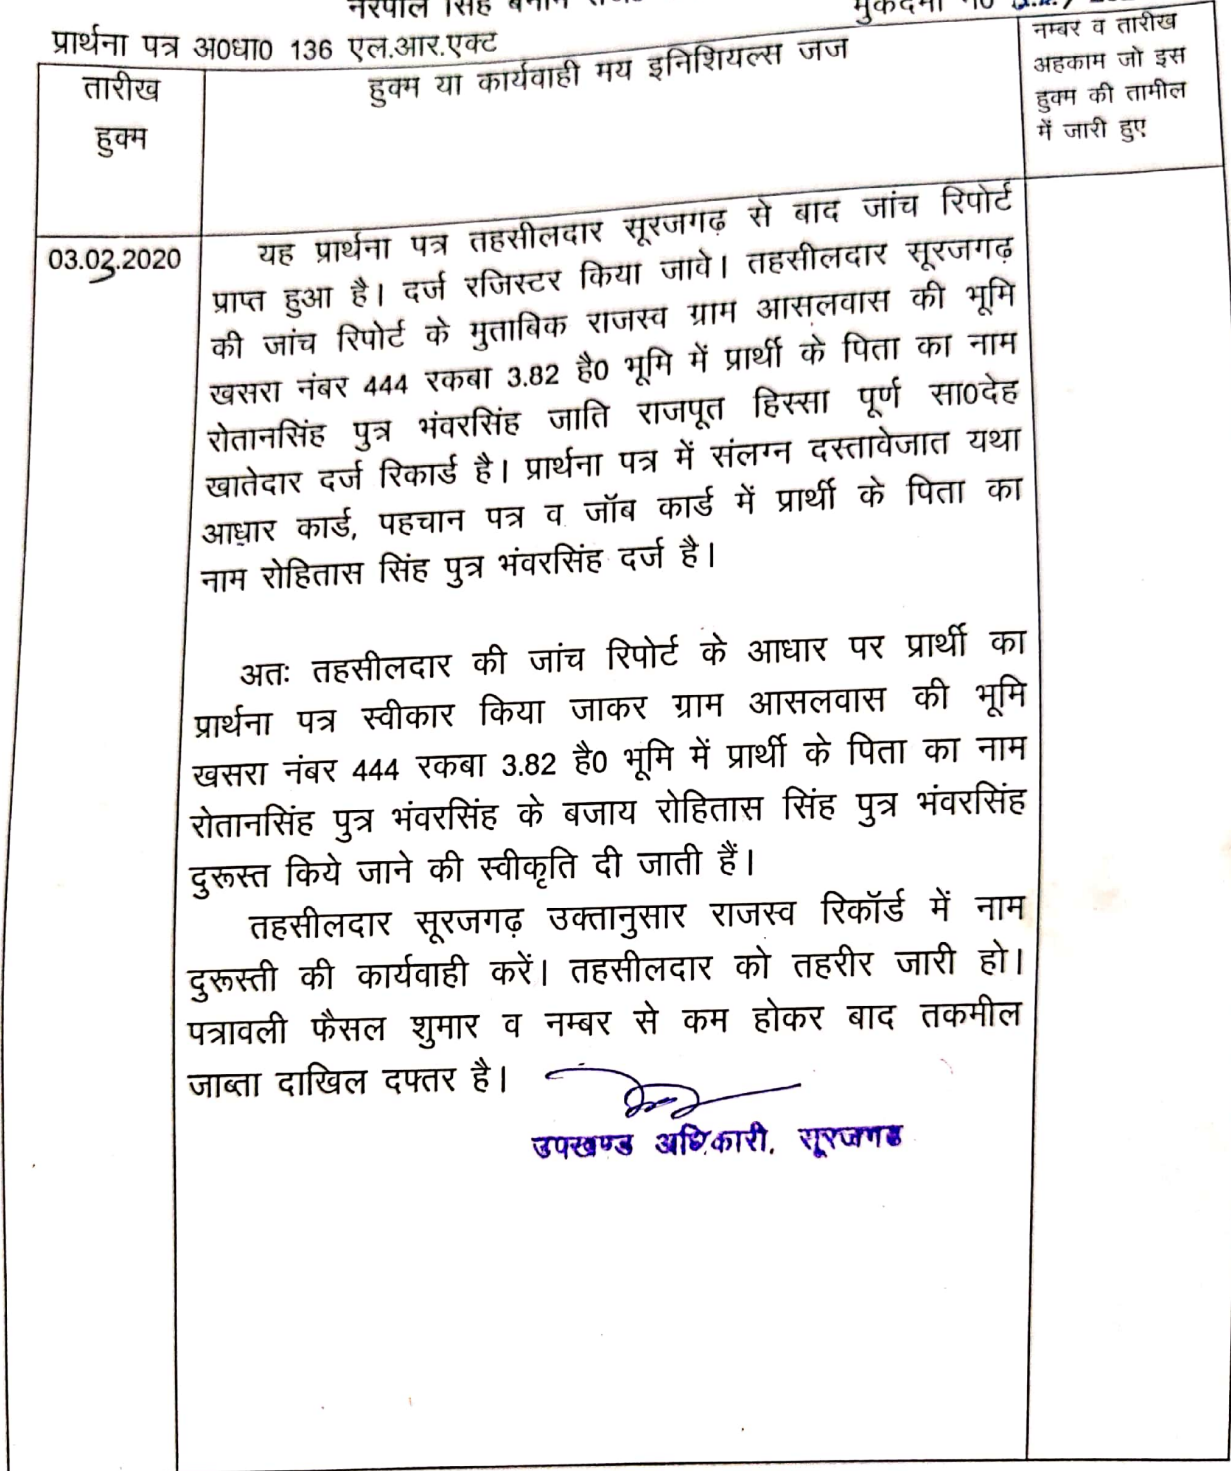 नरपाल सिंह बनाम
मुकदमा न0
प्रार्थना पत्र अ0धा0 136 एल.आर.एक्ट
तारीख
हुक्म
हुक्म या कार्यवाही मय इनिशियल्स जज
नम्बर व तारीख
अहकाम जो इस
हुक्म की तामील
में जारी हुए
03.03.2020
यह प्रार्थना पत्र तहसीलदार सूरजगढ़ से बाद जांच रिपोर्ट
प्राप्त हुआ है। दर्ज रजिस्टर किया जावे। तहसीलदार सूरजगढ़
की जांच रिपोर्ट के मुताबिक राजस्व ग्राम आसलवास की भूमि
खसरा नंबर 444 रकबा 3.82 है0 भूमि में प्रार्थी के पिता का नाम
रोतानसिंह पुत्र भंवरसिंह जाति राजपूत हिस्सा पूर्ण सा0देह
खातेदार दर्ज रिकार्ड है। प्रार्थना पत्र में संलग्न दस्तावेजात यथा
आधार कार्ड, पहचान पत्र व जॉब कार्ड में प्रार्थी के पिता का
नाम रोहितास सिंह पुत्र भंवरसिंह दर्ज है।
अतः तहसीलदार की जांच रिपोर्ट के आधार पर प्रार्थी का
प्रार्थना पत्र स्वीकार किया जाकर ग्राम आसलवास की भूमि
खसरा नंबर 444 रकबा 3.82 है0 भूमि में प्रार्थी के पिता का नाम
रोतानसिंह पुत्र भंवरसिंह के बजाय रोहितास सिंह पुत्र भंवरसिंह
दुरूस्त किये जाने की स्वीकृति दी जाती हैं।
तहसीलदार सूरजगढ़ उक्तानुसार राजस्व रिकॉर्ड में नाम
दुरूस्ती की कार्यवाही करें। तहसीलदार को तहरीर जारी हो।
पत्रावली फैसल शुमार व नम्बर से कम होकर बाद तकमील
जाब्ता दाखिल दफ्तर है।
उपखण्ड अधिकारी, सूरजगढ